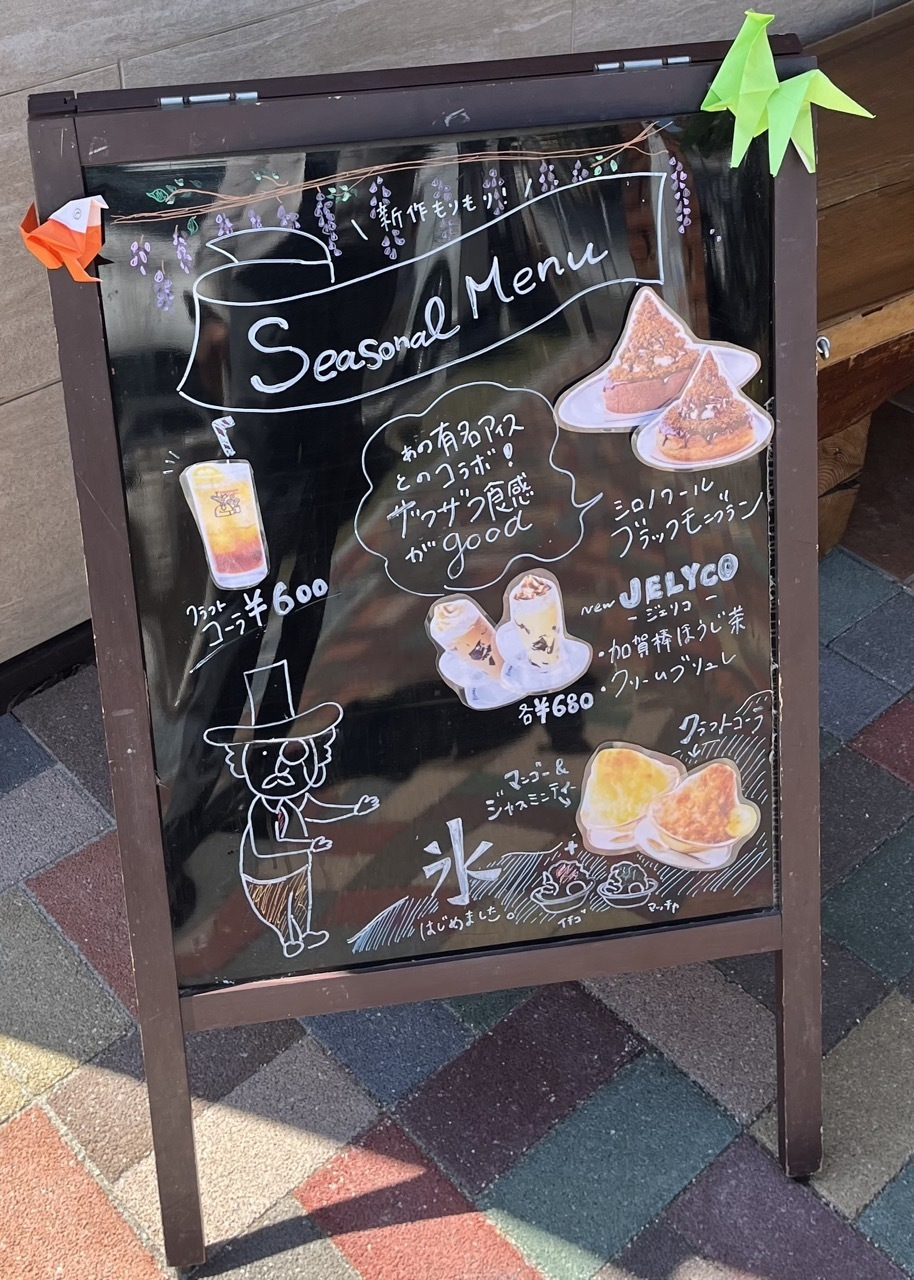 新作もりもり!
Seasonal Menu
あの有名アイス
とのコラボ!
ザクザク食感
がgood
シロノワール
ブラックモンブラン
クラフト
コーラ ¥600
new JELYCO
- ジェリコ -
・加賀棒ほうじ茶
・クリームブリュレ
各¥680
クラフトコーラ
マンゴー&
ジャスミンティー
+
氷
はじめました。
イチゴ
マッチャ